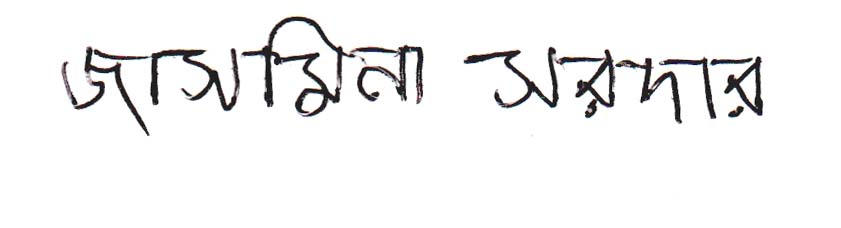 জাসমিনা সরদার